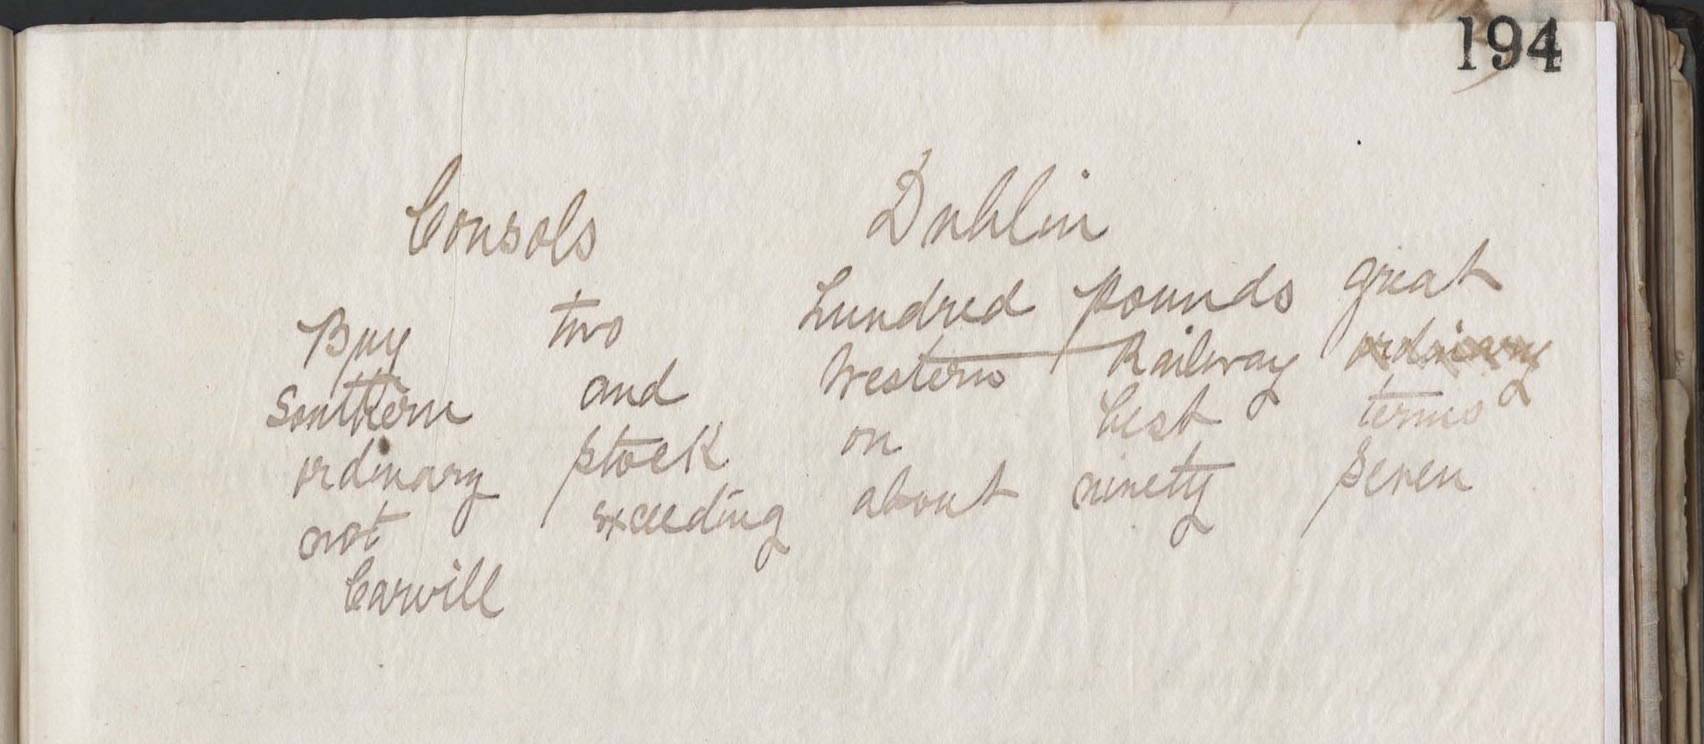 194
Consols Dublin
Buy two hundred pounds great
Southern and Western Railway ordinary
ordinary stock on best terms
not exceeding about ninety seven
Carvill